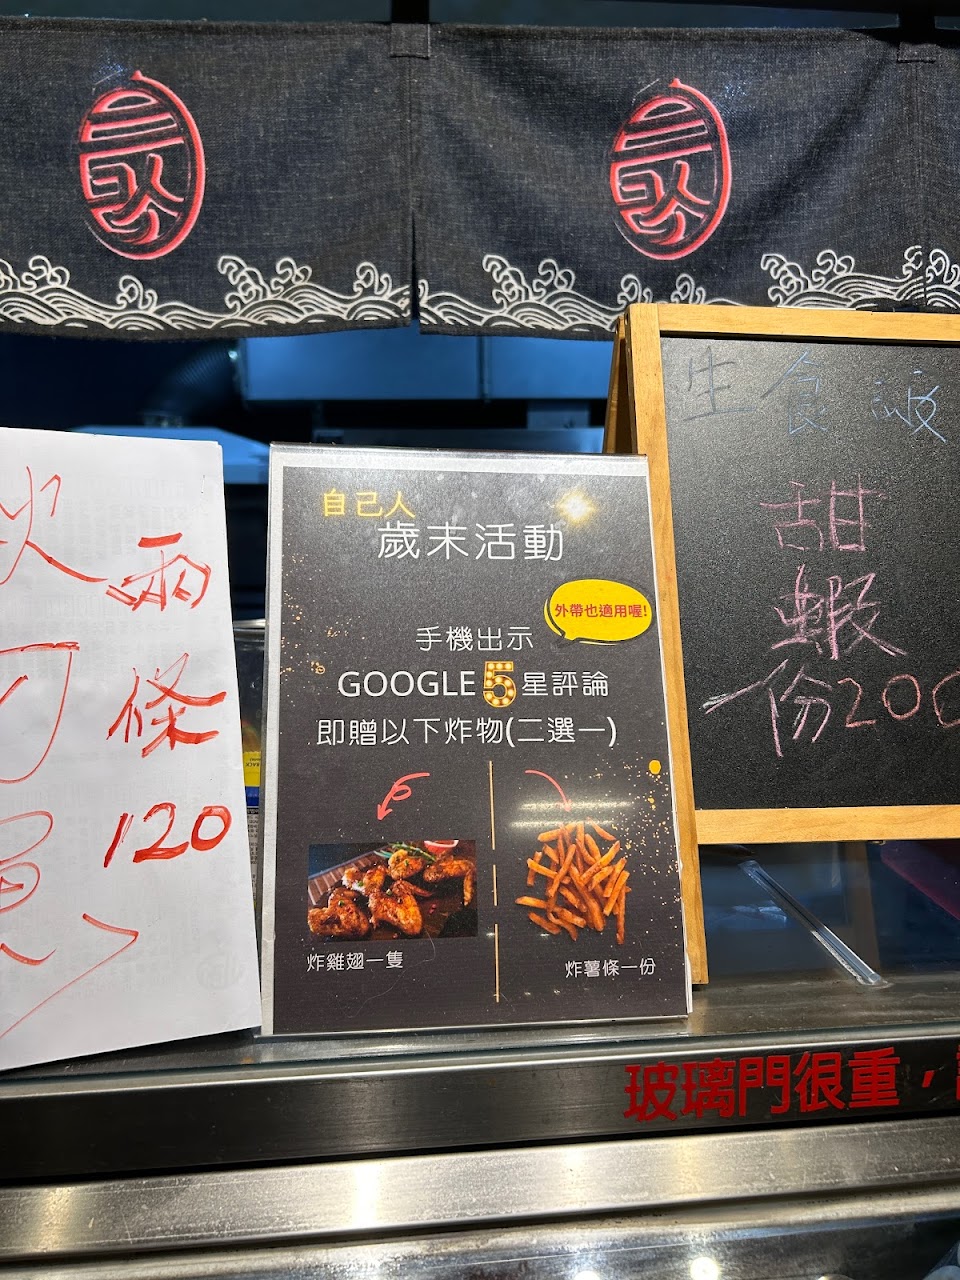 兩
條
120
自己人
歲末活動
外帶也適用喔!
手機出示
GOOGLE 5 星評論
即贈以下炸物(二選一)
炸雞翅一隻
炸薯條一份
生食級
甜
蝦
一份200
玻璃門很重，